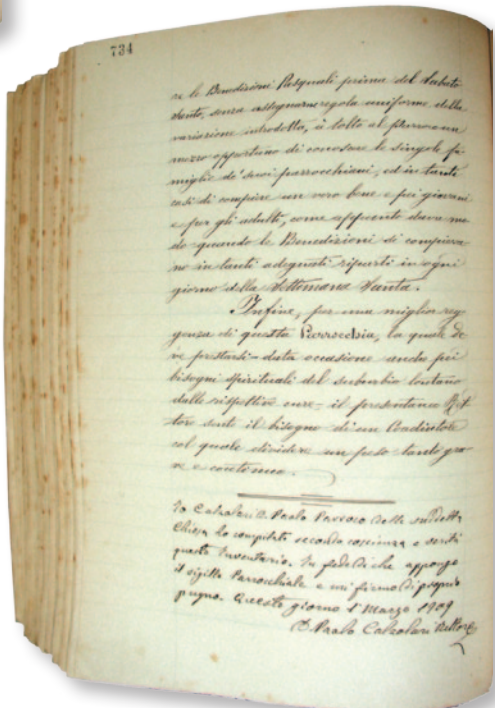 734
re le Benedizioni Pasquali prima del Sabato
Santo, senza assegnarne regola uniforme della
variazione introdotta, à tolto al parroco un
mezzo opportuno di conoscere le singole fa-
miglie de' suoi parrocchiani, ed in tanti
casi di compiere un vero bene e pei giovani
e per gli adulti, come appunto dava mo-
do quando le Benedizioni si compieva-
no in tanti adeguati riparti in ogni
giorno della Settimana Santa.
Infine, per una miglior reg-
genza di questa Parrocchia, la quale de-
ve prestarsi - data occasione anche pei
bisogni spirituali del suburbio lontano
dalle rispettive cure - il presentaneo Ret-
tore sente il bisogno di un Coadiutore
col quale dividere un peso tanto gra-
ve e continuo.
Io Calzolari D. Paolo Parroco della suddetta
Chiesa ho compilato secondo coscienza e verità
questo Inventario. In fede di che appongo
il sigillo Parrocchiale e mi firmo di proprio
pugno. Questo giorno 1° Marzo 1909
D. Paolo Calzolari Rettore